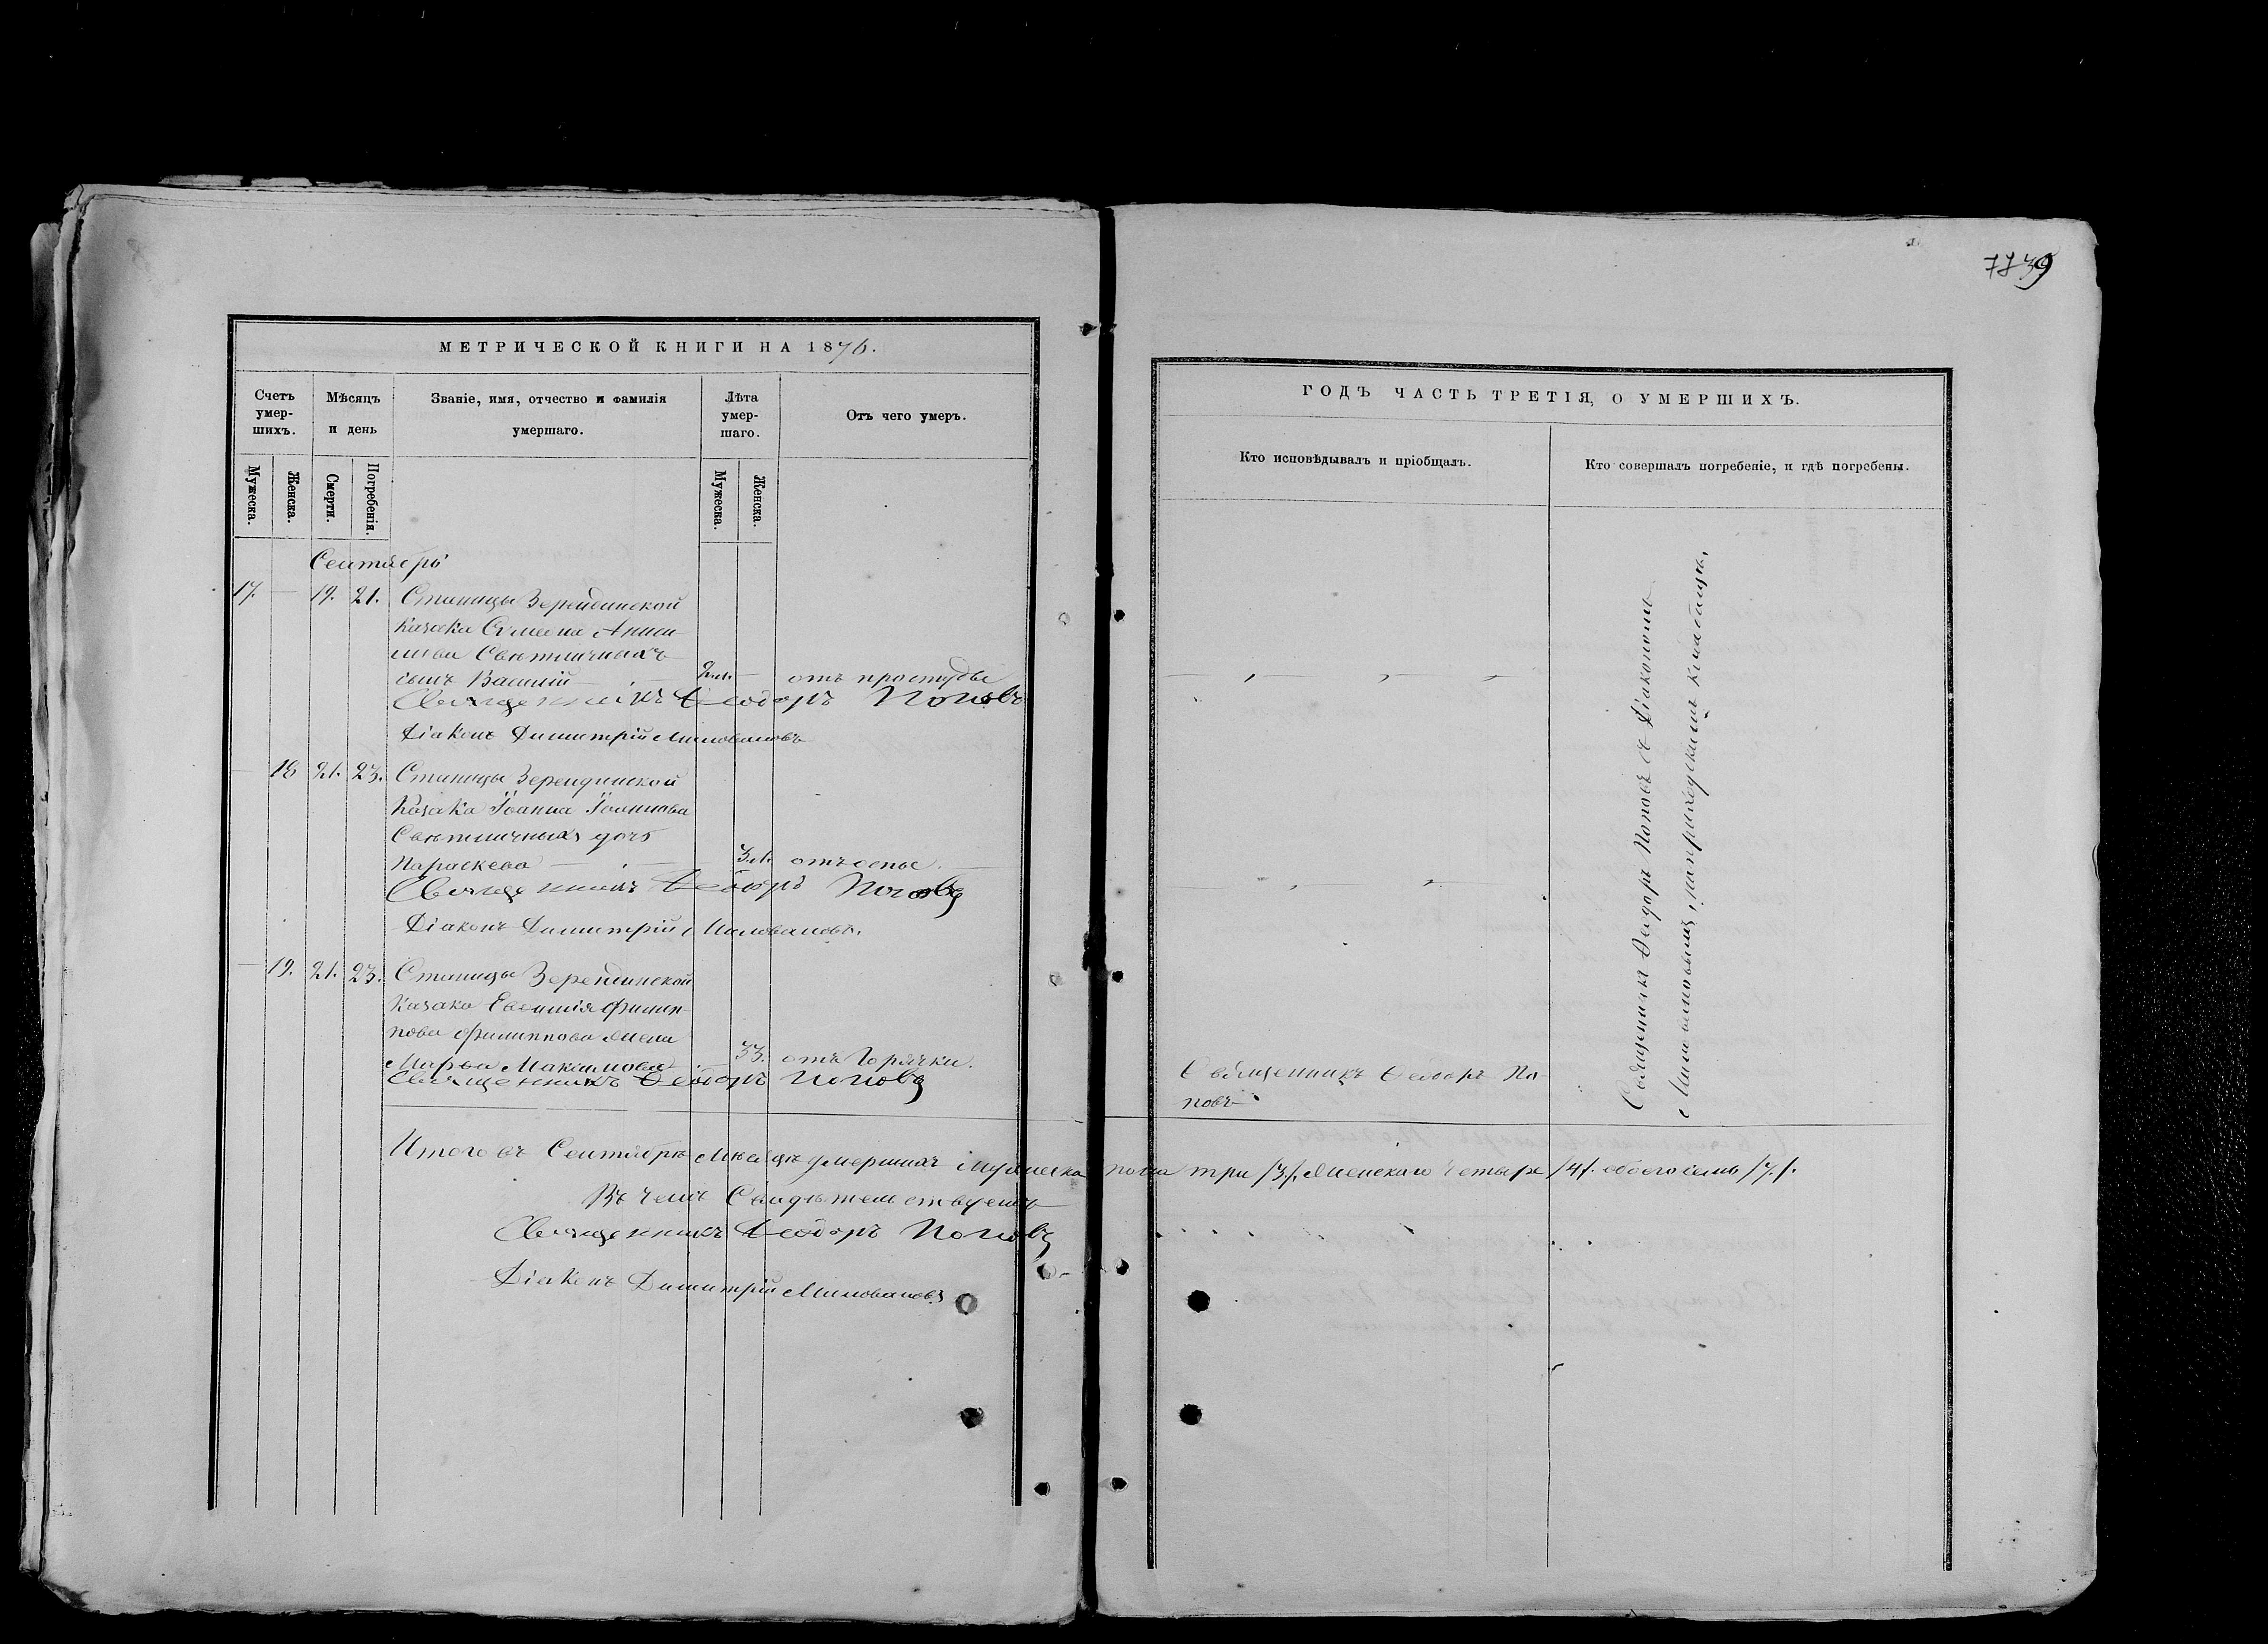 7739
МЕТРИЧЕСКОЙ КНИГИ НА 1876.
Счетъ умер-шихъ.
Мѣсяцъ и день
Званіе, имя, отчество и фамилія умершаго.
Лѣта умер-шаго.
Отъ чего умеръ.
Мужеска.
Женска.
Смерти.
Погребенія.
Мужеска.
Женска.
Сентябрь
17. — 19. 21. Станицы Зерендинской
казака Симеона Аниси-
мова Свѣтличныхъ
сынъ Василій — 2 м. — отъ простуды
Священникъ Ѳеодоръ Поповъ
Діаконъ Димитрій Миловановъ
— 18 21. 23. Станицы Зерендинской
Казака Іоанна Іоаннова
Свѣтличныхъ дочь
Параскева — 3 л. отъ оспы.
Священникъ Ѳеодоръ Поповъ
Діаконъ Димитрій Миловановъ.
— 19. 21. 23. Станицы Зерендинской
Казака Евѳимія Филип-
пова Филиппова жена
Марья Максимова — 33. отъ Горячки.
Священникъ Ѳеодоръ Поповъ
Итого въ Сентябрѣ мѣсяцѣ умершихъ мужеска пола три /3/. женскаго четыре /4/. обоего семь /7/.
Въ чемъ Свидѣтельствуемъ
Священникъ Ѳеодоръ Поповъ
Діаконъ Димитрій Миловановъ
ГОДЪ ЧАСТЬ ТРЕТІЯ, О УМЕРШИХЪ.
Кто исповѣдывалъ и пріобщалъ.
Кто совершалъ погребеніе, и гдѣ погребены.
Священникъ Ѳеодоръ По-
повъ
Священникъ Ѳеодоръ Поповъ съ Діакономъ
Миловановымъ, на приходскомъ кладбищѣ.